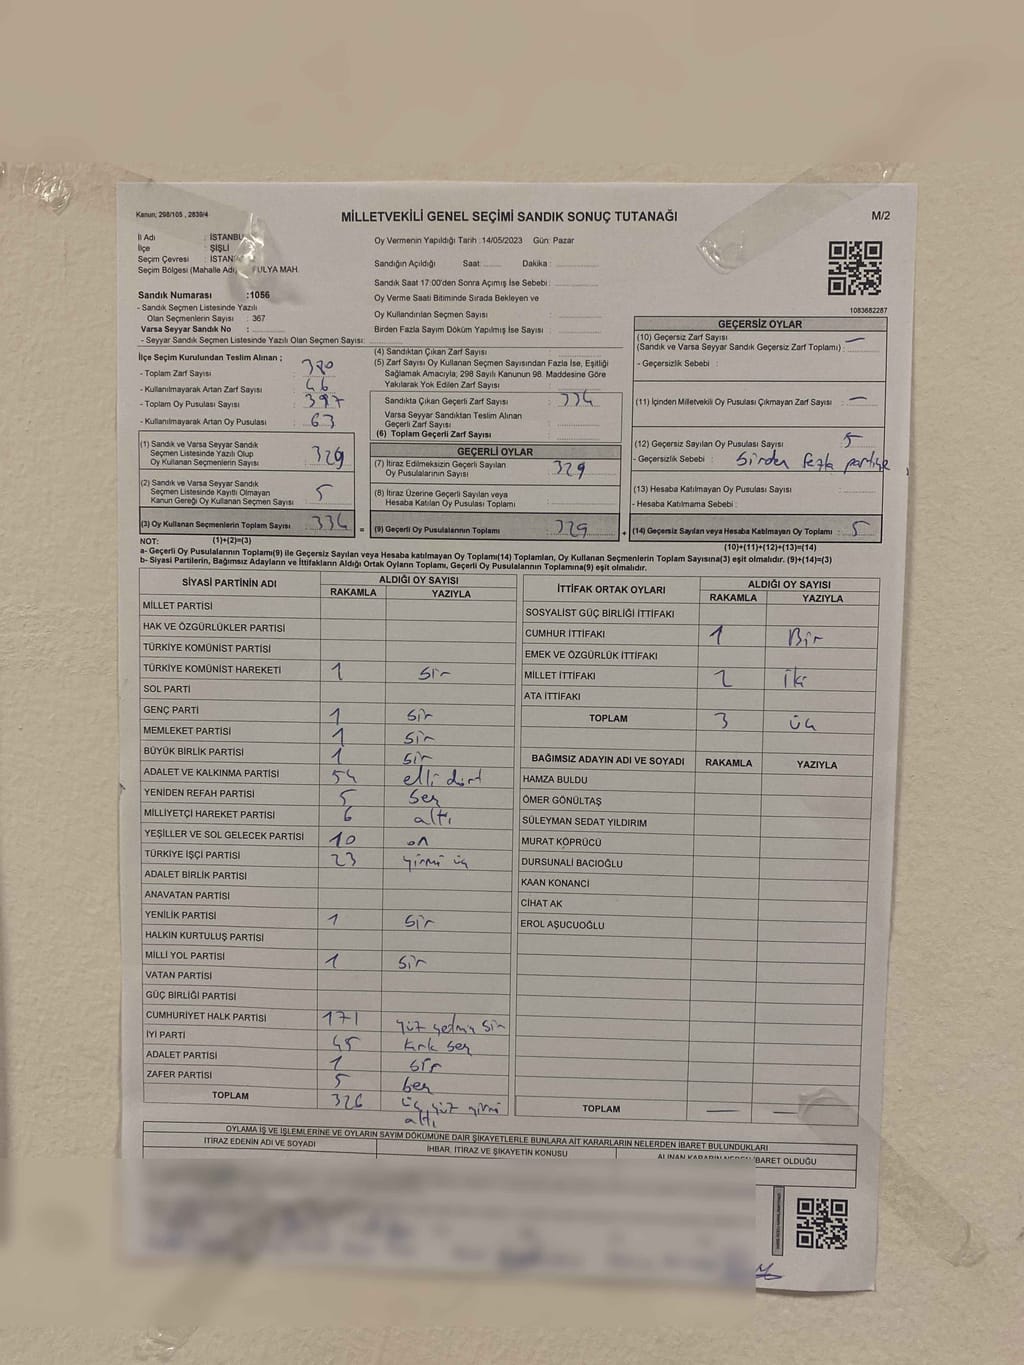 Kanun; 298/105 , 2839/4
MİLLETVEKİLİ GENEL SEÇİMİ SANDIK SONUÇ TUTANAĞI
M/2
İl Adı : İSTANBU
İlçe : ŞİŞLİ
Seçim Çevresi : İSTAN
Seçim Bölgesi (Mahalle Adı) FULYA MAH.
Sandık Numarası :1056
- Sandık Seçmen Listesinde Yazılı
Olan Seçmenlerin Sayısı : 367
Varsa Seyyar Sandık No :
- Seyyar Sandık Seçmen Listesinde Yazılı Olan Seçmen Sayısı:
Oy Vermenin Yapıldığı Tarih :14/05/2023 Gün: Pazar
Sandığın Açıldığı Saat: Dakika :
Sandık Saat 17:00'den Sonra Açımış İse Sebebi :
Oy Verme Saati Bitiminde Sırada Bekleyen ve
Oy Kullandırılan Seçmen Sayısı :
Birden Fazla Sayım Döküm Yapılmış İse Sayısı :
1083682287
İlçe Seçim Kurulundan Teslim Alınan ;
- Toplam Zarf Sayısı : 380
- Kullanılmayarak Artan Zarf Sayısı : 46
- Toplam Oy Pusulası Sayısı : 397
- Kullanılmayarak Artan Oy Pusulası : 63
(1) Sandık ve Varsa Seyyar Sandık
Seçmen Listesinde Yazılı Olup
Oy Kullanan Seçmenlerin Sayısı : 329
(2) Sandık ve Varsa Seyyar Sandık
Seçmen Listesinde Kayıtlı Olmayan
Kanun Gereği Oy Kullanan Seçmen Sayısı : 5
(3) Oy Kullanan Seçmenlerin Toplam Sayısı : 334 =
(4) Sandıktan Çıkan Zarf Sayısı :
(5) Zarf Sayısı Oy Kullanan Seçmen Sayısından Fazla İse, Eşitliği
Sağlamak Amacıyla; 298 Sayılı Kanunun 98. Maddesine Göre
Yakılarak Yok Edilen Zarf Sayısı :
Sandıkta Çıkan Geçerli Zarf Sayısı : 334
Varsa Seyyar Sandıktan Teslim Alınan
Geçerli Zarf Sayısı :
(6) Toplam Geçerli Zarf Sayısı :
GEÇERLİ OYLAR
(7) İtiraz Edilmeksizin Geçerli Sayılan
Oy Pusulalarının Sayısı : 329
(8) İtiraz Üzerine Geçerli Sayılan veya
Hesaba Katılan Oy Pusulası Toplamı :
(9) Geçerli Oy Pusulalarının Toplamı : 329 +
GEÇERSİZ OYLAR
(10) Geçersiz Zarf Sayısı
(Sandık ve Varsa Seyyar Sandık Geçersiz Zarf Toplamı) : —
- Geçersizlik Sebebi :
(11) İçinden Milletvekili Oy Pusulası Çıkmayan Zarf Sayısı : —
(12) Geçersiz Sayılan Oy Pusulası Sayısı : 5
- Geçersizlik Sebebi : Birden fazla partiye
(13) Hesaba Katılmayan Oy Pusulası Sayısı :
- Hesaba Katılmama Sebebi :
(14) Geçersiz Sayılan veya Hesaba Katılmayan Oy Toplamı : 5
NOT: (1)+(2)=(3)
(10)+(11)+(12)+(13)=(14)
a- Geçerli Oy Pusulalarının Toplamı(9) ile Geçersiz Sayılan veya Hesaba katılmayan Oy Toplamı(14) Toplamları, Oy Kullanan Seçmenlerin Toplam Sayısına(3) eşit olmalıdır. (9)+(14)=(3)
b- Siyasi Partilerin, Bağımsız Adayların ve İttifakların Aldığı Ortak Oyların Toplamı, Geçerli Oy Pusulalarının Toplamına(9) eşit olmalıdır.
SİYASİ PARTİNİN ADI ALDIĞI OY SAYISI
RAKAMLA YAZIYLA
MİLLET PARTİSİ
HAK VE ÖZGÜRLÜKLER PARTİSİ
TÜRKİYE KOMÜNİST PARTİSİ
TÜRKİYE KOMÜNİST HAREKETİ 1 bir
SOL PARTİ
GENÇ PARTİ 1 bir
MEMLEKET PARTİSİ 1 bir
BÜYÜK BİRLİK PARTİSİ 1 bir
ADALET VE KALKINMA PARTİSİ 54 elli dört
YENİDEN REFAH PARTİSİ 5 beş
MİLLİYETÇİ HAREKET PARTİSİ 6 altı
YEŞİLLER VE SOL GELECEK PARTİSİ 10 on
TÜRKİYE İŞÇİ PARTİSİ 23 yirmi üç
ADALET BİRLİK PARTİSİ
ANAVATAN PARTİSİ
YENİLİK PARTİSİ 1 bir
HALKIN KURTULUŞ PARTİSİ
MİLLİ YOL PARTİSİ 1 bir
VATAN PARTİSİ
GÜÇ BİRLİĞİ PARTİSİ
CUMHURİYET HALK PARTİSİ 171 yüz yetmiş bir
İYİ PARTİ 45 kırk beş
ADALET PARTİSİ 1 bir
ZAFER PARTİSİ 5 beş
TOPLAM 326 üç yüz yirmi
altı
İTTİFAK ORTAK OYLARI ALDIĞI OY SAYISI
RAKAMLA YAZIYLA
SOSYALİST GÜÇ BİRLİĞİ İTTİFAKI
CUMHUR İTTİFAKI 1 Bir
EMEK VE ÖZGÜRLÜK İTTİFAKI
MİLLET İTTİFAKI 2 iki
ATA İTTİFAKI
TOPLAM 3 üç
BAĞIMSIZ ADAYIN ADI VE SOYADI RAKAMLA YAZIYLA
HAMZA BULDU
ÖMER GÖNÜLTAŞ
SÜLEYMAN SEDAT YILDIRIM
MURAT KÖPRÜCÜ
DURSUNALİ BACIOĞLU
KAAN KONANCİ
CİHAT AK
EROL AŞUCUOĞLU
TOPLAM — —
OYLAMA İŞ VE İŞLEMLERİNE VE OYLARIN SAYIM DÖKÜMÜNE DAİR ŞİKAYETLERLE BUNLARA AİT KARARLARIN NELERDEN İBARET BULUNDUKLARI
İTİRAZ EDENİN ADI VE SOYADI İHBAR, İTİRAZ VE ŞİKAYETİN KONUSU ALINAN KARARIN NEDEN İBARET OLDUĞU